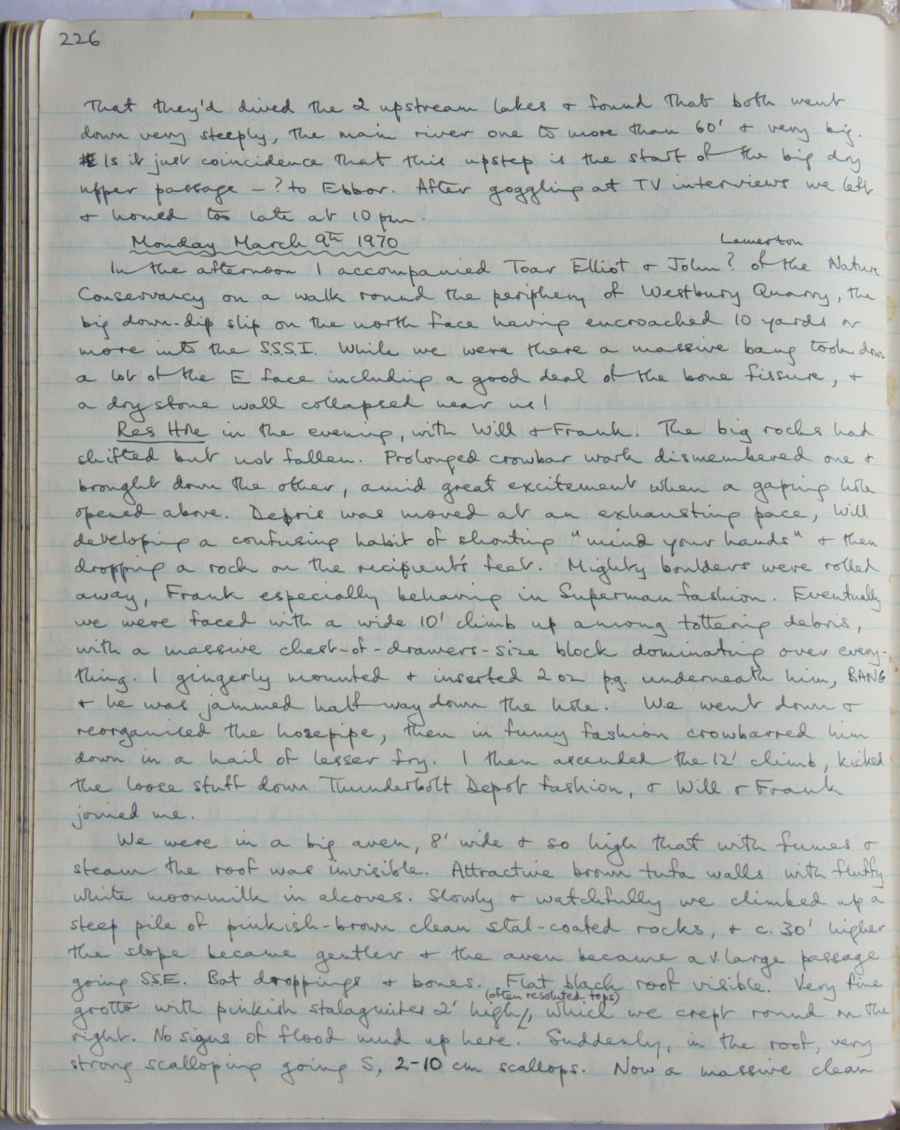 226
that they'd dived the 2 upstream lakes & found that both went
down very steeply, the main river one to more than 60' & very big.
Is it just coincidence that this upstep is the start of the big dry
upper passage - ? to Ebbor. After goggling at TV interviews we left
& homed too late at 10 pm.
Monday March 9th 1970
Lewerton
In the afternoon I accompanied Toar Elliot & John? of the Nature
Conservancy on a walk round the periphery of Westbury Quarry, the
big down-dip slip on the north face having encroached 10 yards or
more into the SSSI. While we were there a massive bang took down
a lot of the E face including a good deal of the bone fissure, &
a dry stone wall collapsed near us!
Res Hole in the evening, with Will & Frank. The big rocks had
shifted but not fallen. Prolonged crowbar work dismembered one &
brought down the other, amid great excitement when a gaping hole
opened above. Debris was moved at an exhausting pace, Will
developing a confusing habit of shouting "mind your hands" & then
dropping a rock on the recipient's feet. Mighty boulders were rolled
away, Frank especially behaving in Superman fashion. Eventually
we were faced with a wide 10' climb up among tottering debris,
with a massive chest-of-drawers-size block dominating over every-
thing. I gingerly mounted & inserted 2 oz pg. underneath him, BANG
& he was jammed half way down the hole. We went down &
reorganised the hosepipe, then in funny fashion crowbarred him
down in a hail of lesser fry. I then ascended the 12' climb, kicked
the loose stuff down Thunderbolt Depot fashion, & Will & Frank
joined me.
We were in a big aven, 8' wide & so high that with fumes &
steam the roof was invisible. Attractive brown tufa walls with fluffy
white moonmilk in alcoves. Slowly & watchfully we climbed up a
steep pile of pinkish-brown clean stal-coated rocks, & c. 30' higher
the slope became gentler & the aven became a v. large passage
going SSE. Bat droppings & bones. Flat black roof visible. Very fine
(often resoluted tops)
grotto with pinkish stalagmites 2' high, which we crept round on the
right. No signs of flood mud up here. Suddenly, in the roof, very
strong scalloping going S, 2-10 cm scallops. Now a massive clean